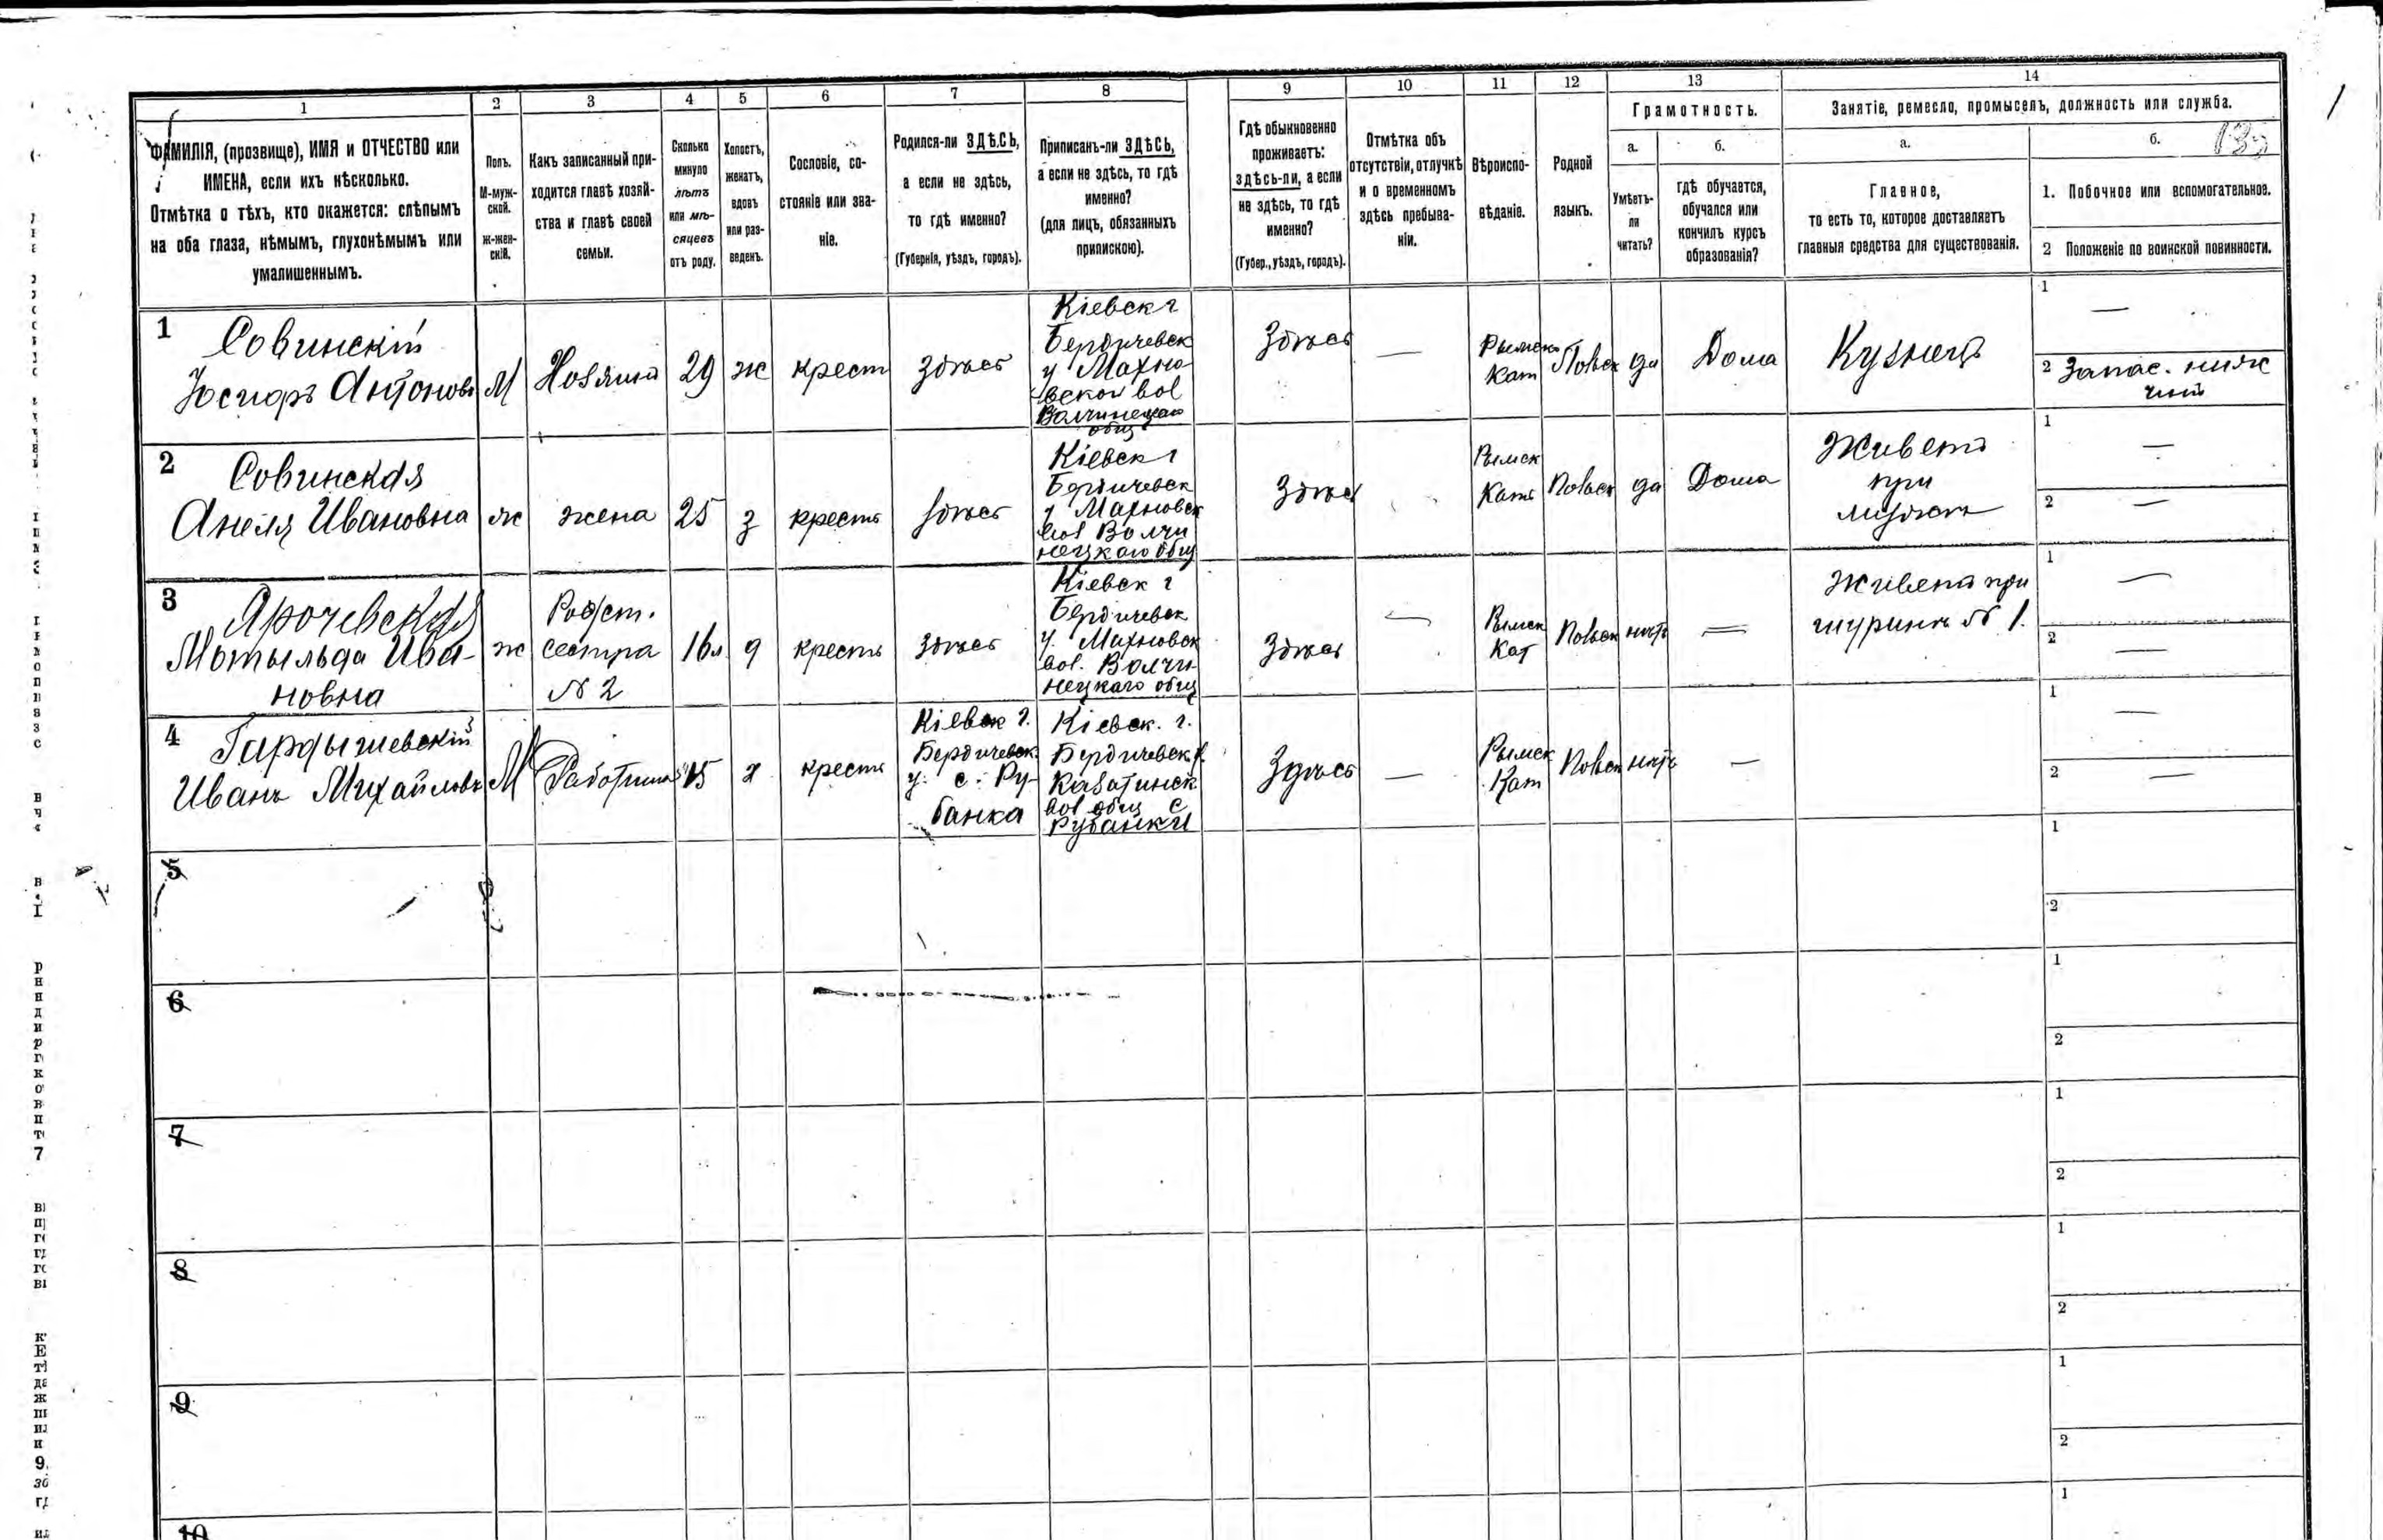 1 2 3 4 5 6 7 8 9 10 11 12 13 14
ФАМИЛІЯ, (прозвище), ИМЯ и ОТЧЕСТВО или
ИМЕНА, если ихъ нѣсколько.
Отмѣтка о тѣхъ, кто окажется: слѣпымъ
на оба глаза, нѣмымъ, глухонѣмымъ или
умалишеннымъ.
Полъ.
М-муж-
ской.
ж-жен-
скій.
Какъ записанный при-
ходится главѣ хозяй-
ства и главѣ своей
семьи.
Сколько
минуло
лѣтъ
или мѣ-
сяцевъ
отъ роду.
Холостъ,
женатъ,
вдовъ
или раз-
веденъ.
Сословіе, со-
стояніе или зва-
ніе.
Родился-ли ЗДѢСЬ,
а если не здѣсь,
то гдѣ именно?
(Губернія, уѣздъ, городъ).
Приписанъ-ли ЗДѢСЬ,
а если не здѣсь, то гдѣ
именно?
(для лицъ, обязанныхъ
припискою).
Гдѣ обыкновенно
проживаетъ:
здѣсь-ли, а если
не здѣсь, то гдѣ
именно?
(Губер., уѣздъ, городъ).
Отмѣтка объ
отсутствіи, отлучкѣ
и о временномъ
здѣсь пребыва-
ніи.
Вѣроиспо-
вѣданіе.
Родной
языкъ.
Грамотность.
а.
Умѣетъ-
ли
читать?
б.
гдѣ обучается,
обучался или
кончилъ курсъ
образованія?
Занятіе, ремесло, промыселъ, должность или служба.
а.
Главное,
то есть то, которое доставляетъ
главныя средства для существованія.
б.
1. Побочное или вспомогательное.
2 Положеніе по воинской повинности.
1
Совинскій
Юсифъ Антоновъ
М
Хозяинъ
29
ж
крест
здѣсь
Кіевск г
Бердичевск
у Махно
вской вол
Волчинецкаго
общ
Здѣсь
—
Рымск
Кат
Польск
да
Дома
Кузнецъ
1
—
2 Запас. ниж
чин
2
Совинская
Анеля Ивановна
ж
жена
25
з
крестъ
здѣсь
Кіевск г
Бердичевск
у Махновск
вол Волчи
нецкаго общ
Здѣсь
Рымск
Катъ
Польск
да
Дома
Живетъ
при
1
—
2
—
3
Ярочевская
Мотыльда Ива-
новна
ж
Родст.
сестра
№ 2
16 л
д
крестъ
здѣсь
Кіевск г
Бердичевск
у. Махновск
вол. Волчи-
нецкаго общ
Здѣсь
—
Рымск
Кат
Польск
нѣтъ
—
Живетъ при
шуринѣ № 1.
1
—
2
—
4
Гардышевскій
Иванъ Михайловъ
М
Работникъ
15
х
крестъ
Кіевск г.
Бердичевск.
у. с. Ру-
банка
Кіевск. г.
Бердичевск у.
Казатинск
вол общ с
Рубанки
Здѣсь
—
Рымск
Кат
Польск
нѣтъ
—
1
—
2
—
5
1
2
6
1
2
7
1
2
8
1
2
9
1
2
10
1